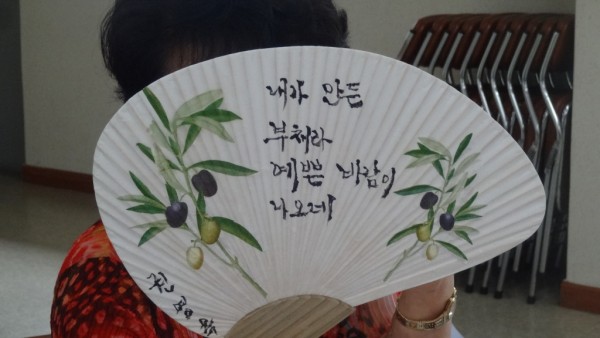 내가 만든
부채라
예쁜 바람이
나오네
권